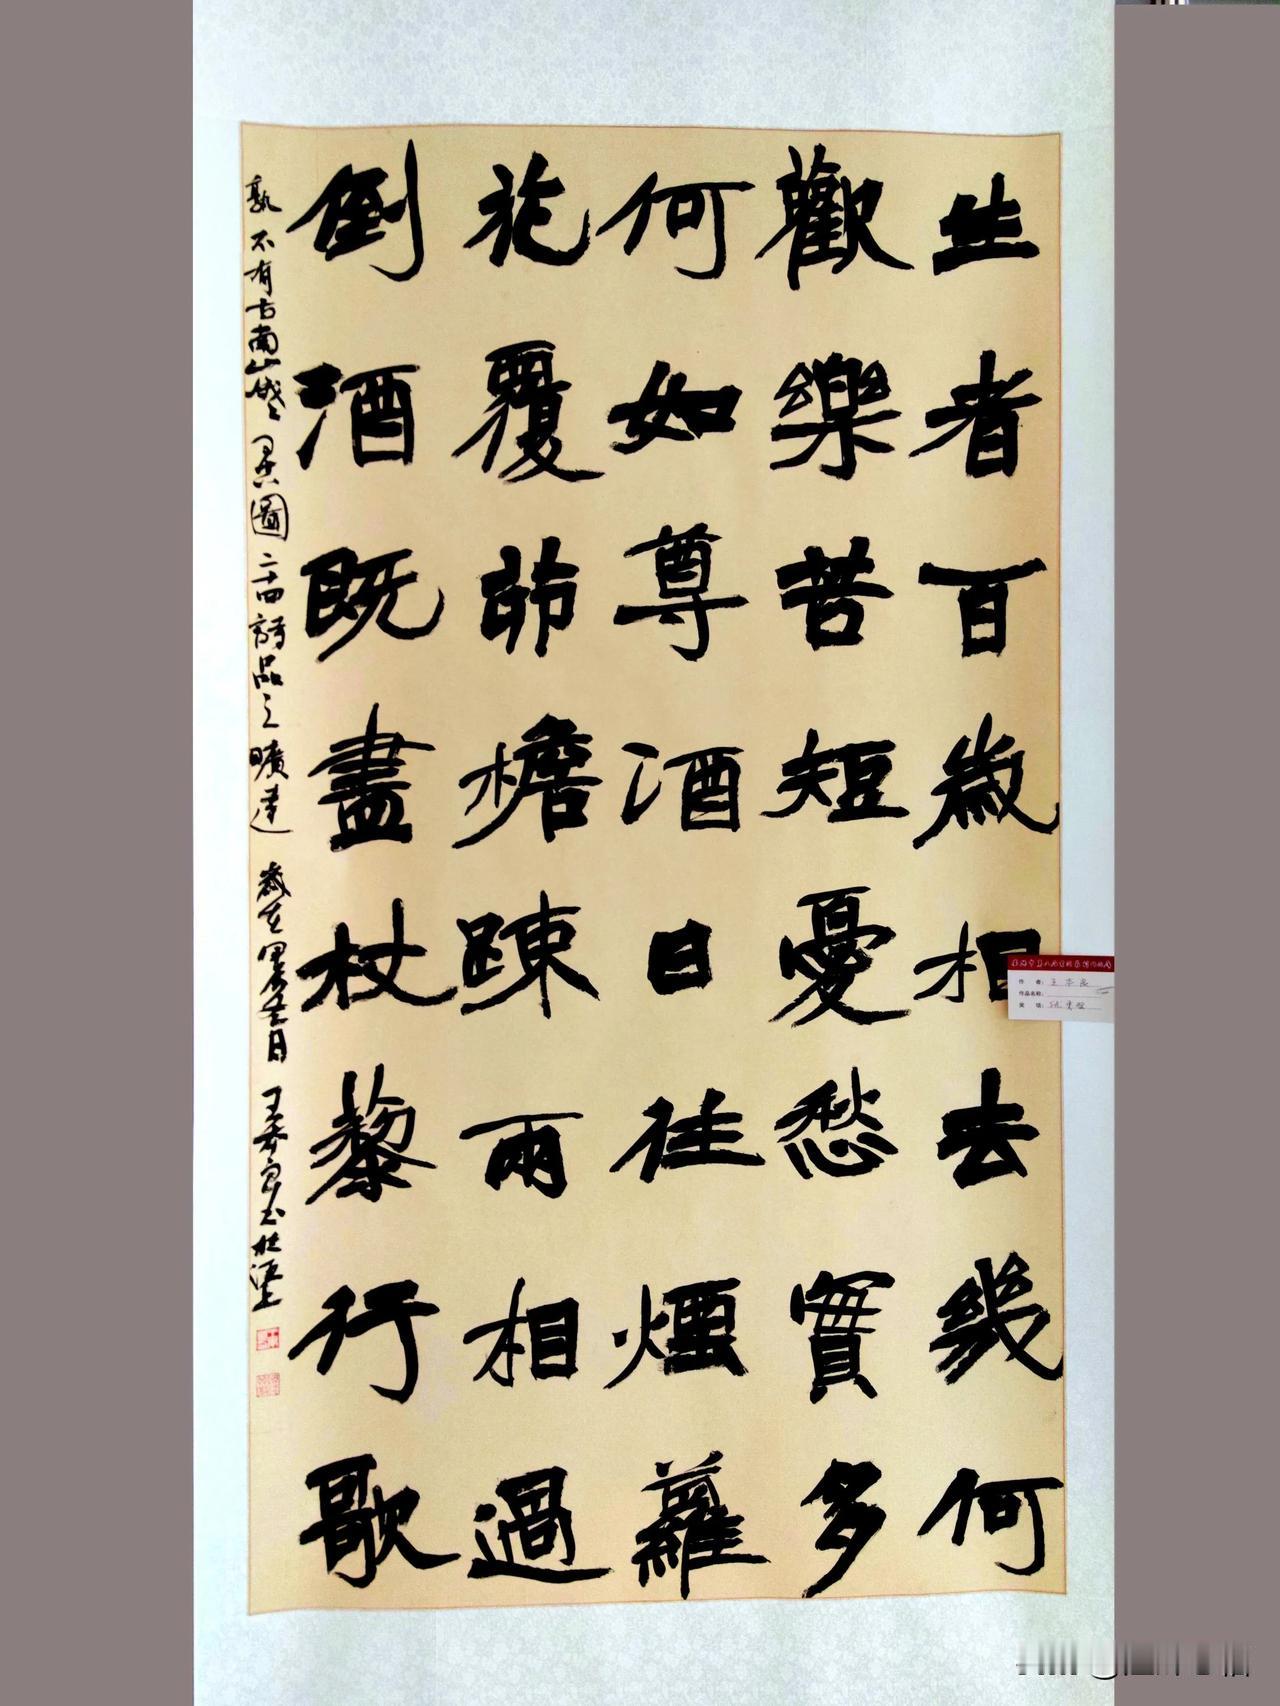 生者百歲相去幾何
歡樂苦短憂愁實多
何如尊酒日往煙蘿
花覆茆檐疎雨相過
倒酒既盡杖藜行歌
孰不有古南山峩峩司空圖二十四詩品之曠達
作者：王
作品名称：
奖项：